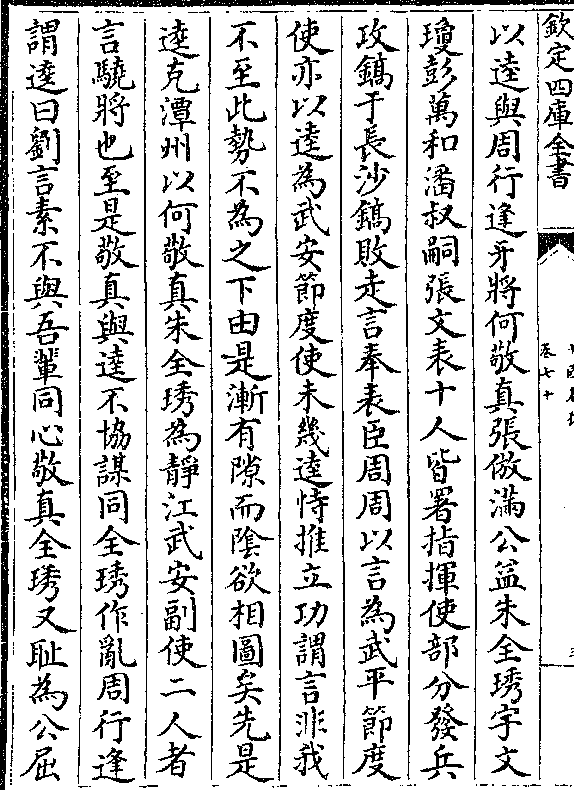 欽定四庫全書
卷七十
以逵與周行逢牙將何敬真張倣滿公益朱全琇宇文
瓊彭萬和潘叔嗣張文表十人皆署指揮使部分發兵
攻鎬于長沙鎬敗走言奉表臣周周以言為武平節度
使亦以逵為武安節度使未幾逵恃推立功謂言非我
不至此勢不為之下由是漸有隙而陰欲相圖矣先是
逵克潭州以何敬真朱全琇為靜江武安副使二人者
言驍將也至是敬真與逵不協謀同全琇作亂周行逢
謂逵曰劉言素不與吾輩同心敬真全琇又耻為公屈